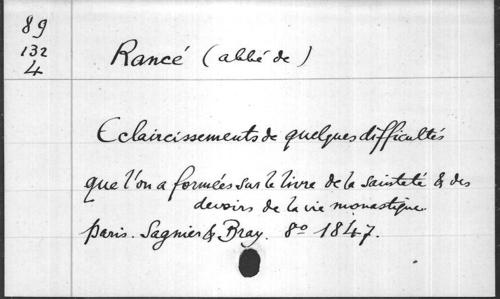 89
132
4
Rancé (abbé de)
Eclaircissements de quelques difficultés
que l'on a formées sur le livre de la Sainteté & des
devoirs de la vie monastique.
Paris. Sagnier & Bray. 8º 1847.